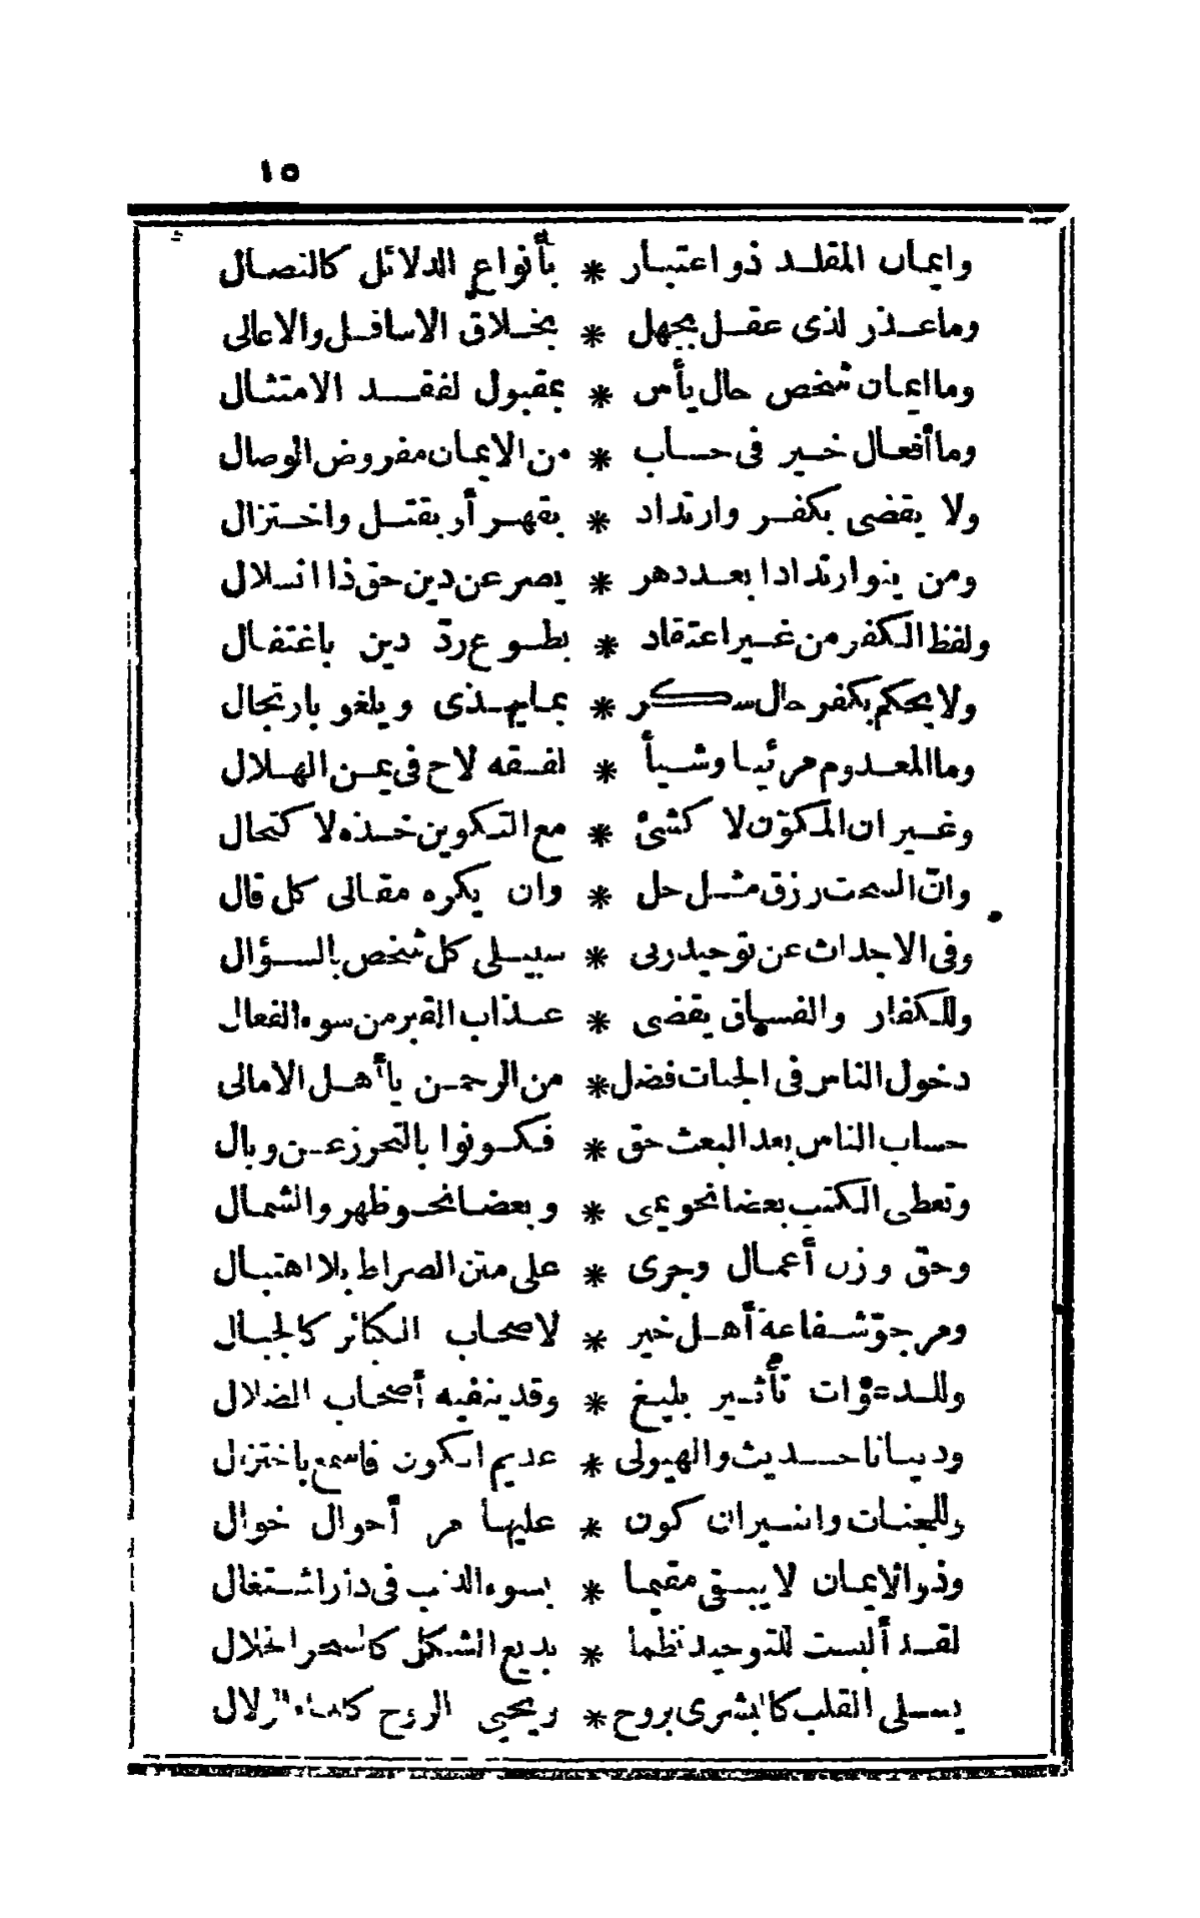 ١٥
وايمان المقلد ذو اعتبار * بأنواع الدلائل كالنصال
وما عذر لذى عقل بجهل * بخلاق الاسافل والاعالى
وما ايمان شخص حال يأس * بمقبول لفقد الامتثال
وما أفعال خير فى حساب * من الايمان مفروض الوصال
ولا يقضى بكفر وارتداد * بقهر أو بقتل واختزال
ومن ينو ارتدادا بعد دهر * يصر عن دين حق ذا انسلال
ولفظ الكفر من غير اعتقاد * بطوع ردّ دين باغتفال
ولا يحكم بكفر حال سكر * بما يهذى ويلغو بارتجال
وما المعدوم مرئيا وشيأ * لفقه لاح فى يمن الهلال
وغيران المكوّن لا كشئ * مع التكوين خذه لاكتحال
وانّ السحت رزق مثل حل * وان يكره مقالى كل قال
وفى الاجداث عن توحيد ربى * سيبلى كل شخص بالسؤال
وللكفار والفساق يقضى * عذاب القبر من سوء الفعال
دخول الناس فى الجنات فضل * من الرحمن يا أهل الامالى
حساب الناس بعد البعث حق * فكونوا بالتحرز عن وبال
وتعطى الكتب بعضا نحو يمى * وبعضا نحو ظهر والشمال
وحق وزن أعمال وجرى * على متن الصراط بلا اهتبال
ومرجوّ شفاعة أهل خير * لاصحاب الكبائر كالجبال
وللدعوات تأثير بليغ * وقد ينفيه أصحاب الضلال
ودنيانا حديث والهيولى * عديم الكون فاسمع باختزال
وللجنات والنيران كون * عليها مر أحوال خوال
وذو الايمان لا يبقى مقيما * بسوء الذنب فى دار اشتغال
لقد ألبست للتوحيد نظما * بديع الشكل كالسحر الحلال
يسلى القلب كالبشرى بروح * ويحيى الروح كالماء الزلال